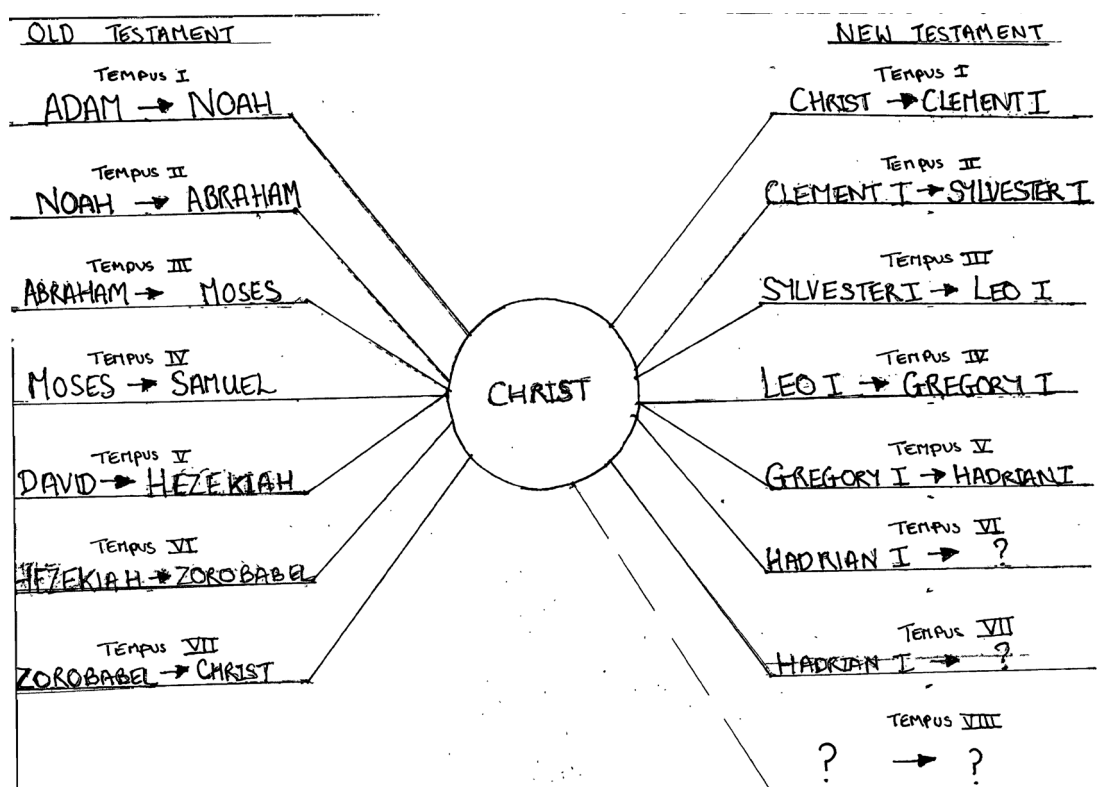 OLD TESTAMENT
TEMPUS I
ADAM → NOAH
TEMPUS II
NOAH → ABRAHAM
TEMPUS III
ABRAHAM → MOSES
TEMPUS IV
MOSES → SAMUEL
TEMPUS V
DAVID → HEZEKIAH
TEMPUS VI
HEZEKIAH → ZOROBABEL
TEMPUS VII
ZOROBABEL → CHRIST
CHRIST
NEW TESTAMENT
TEMPUS I
CHRIST → CLEMENT I
TEMPUS II
CLEMENT I → SYLVESTER I
TEMPUS III
SYLVESTER I → LEO I
TEMPUS IV
LEO I → GREGORY I
TEMPUS V
GREGORY I → HADRIAN I
TEMPUS VI
HADRIAN I → ?
TEMPUS VII
HADRIAN I → ?
TEMPUS VIII
? → ?